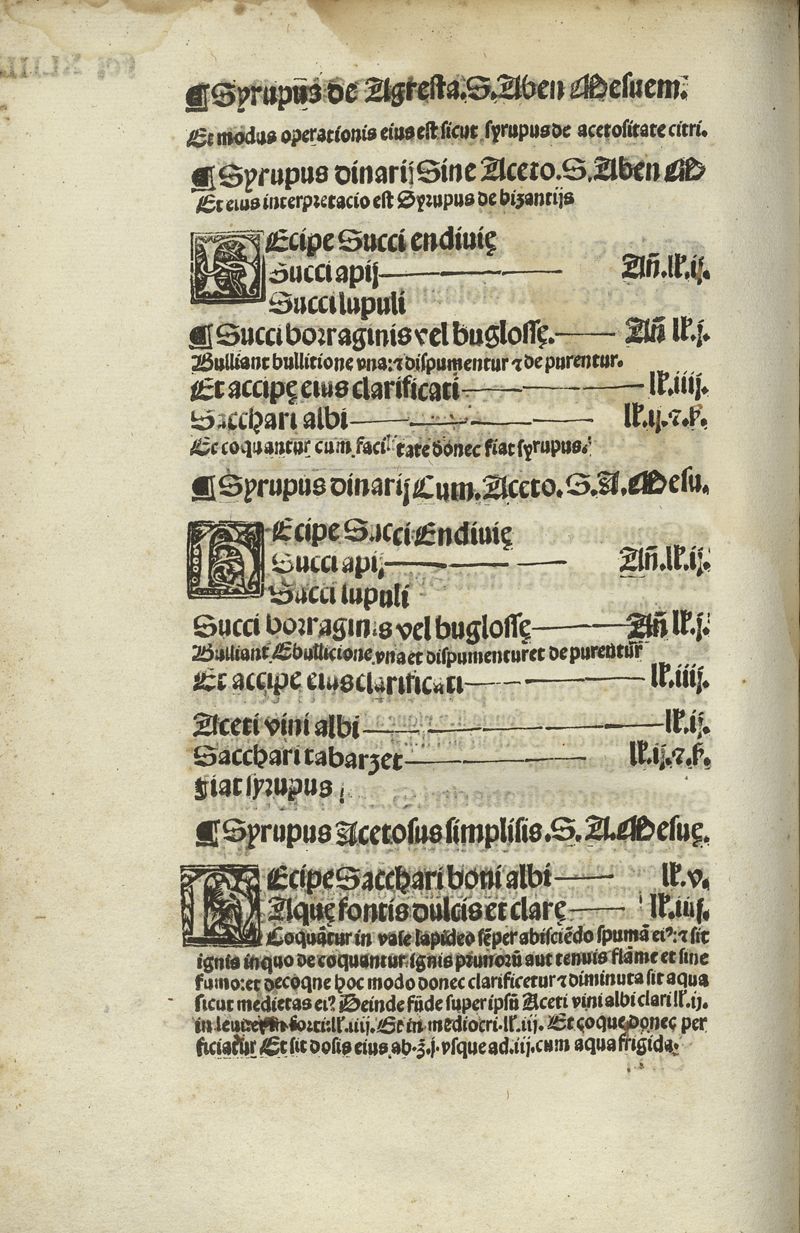 ¶Syrupus de Agresta.S.Aben Mesuem.
Et modus operationis eius est sicut syrupus de acetositate citri.
¶Syrupus dinarij Sine Aceto.S.Aben M
Et eius interpretacio est Syrupus de bizantijs
REcipe Succi endiuię
Succi apij Añ.lƀ.ij.
Succi lupuli
¶Succi borraginis vel buglossę. Añ lƀ.j.
Bulliant bullitione vna:⁊ dispumentur ⁊ de purentur.
Et accipę eius clarificati lƀ.iiij.
Sacchari albi lƀ.ij.⁊.ß.
Et coquantur cum facilitate donec fiat syrupus.
¶Syrupus dinarij Cum.Aceto.S.A.Mesu.
REcipe Succi Endiuię
Succi apij Añ.lƀ.ij.
Succi lupuli
Succi borraginis vel buglossę Añ lƀ.j.
Bulliant.Ebullicione.vna et dispumentur et de purentur
Et accipe eius clarificati lƀ.iiij.
Aceti vini albi lƀ.ij.
Sacchari tabarzet lƀ.ij.⁊.ß.
Fiat syrupus
¶Syrupus Acetosus simplisis.S.A.Mesuę.
REcipe Sacchari boni albi lƀ.v.
Aquę fontis dulcis et clarę lƀ.iiij.
Coquãtur in vase lapideo sẽper abisciẽdo spumã ei⁹:⁊ sit
ignis in quo de coquantur ignis prunorũ aut tenuis flãme et sine
fumo:et decoqne hoc modo donec clarificetur ⁊ diminuta sit aqua
sicut medietas ei⁹ Deinde fũde super ipsũ Aceti vini albi clari lƀ.ij.
in forti:lƀ.iiij. Et in mediocri.lƀ.iij. Et çoque donec per
ficiatur Et sit dosis eius ab.ʒ.j.vsque ad.iij.cum aqua frigida.